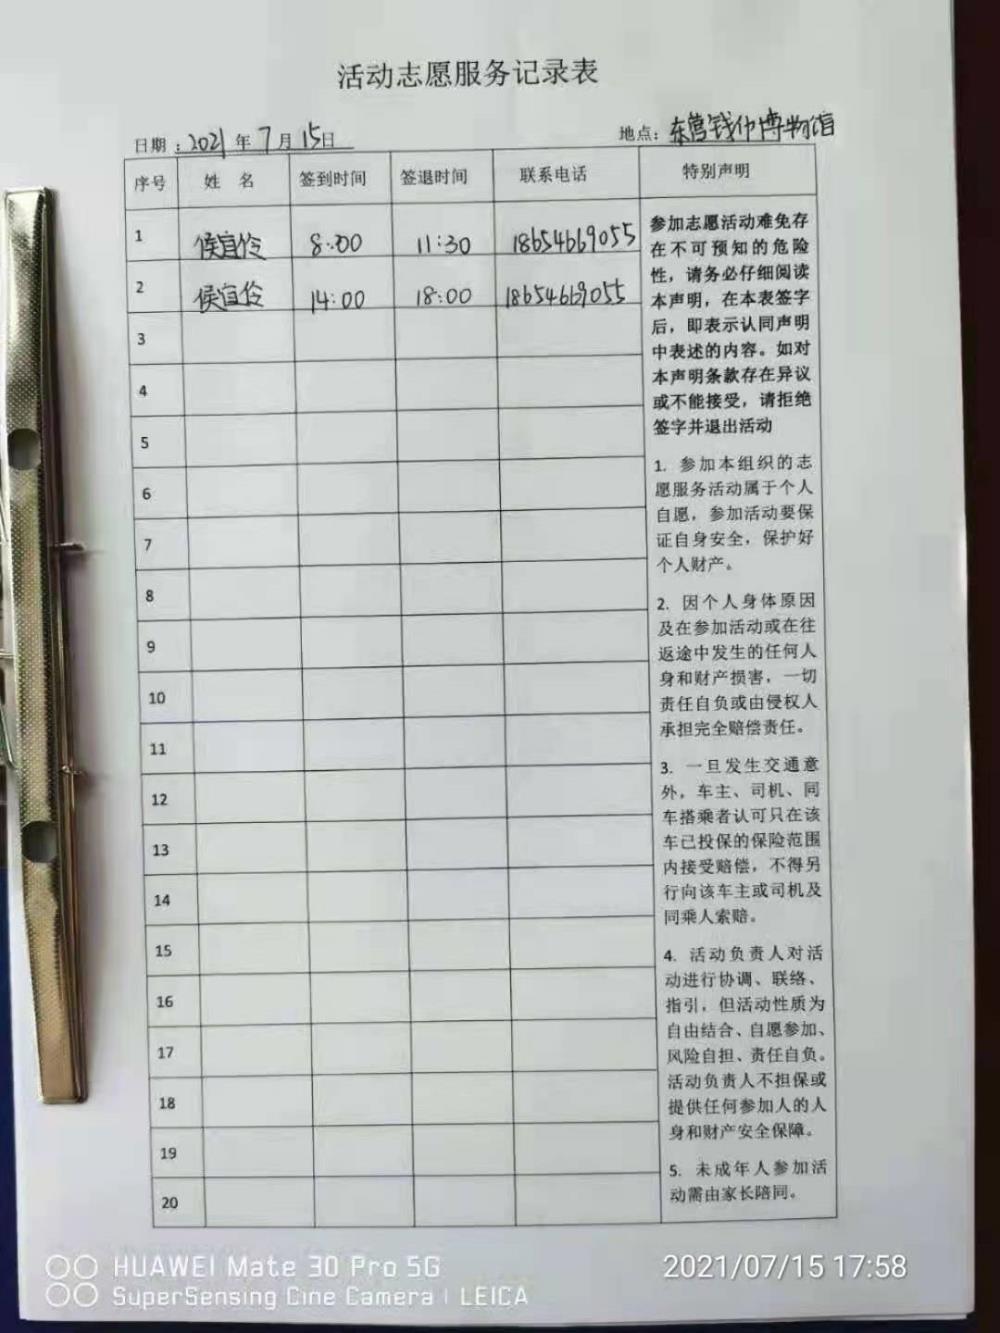 活动志愿服务记录表
日期：2021年7月15日 地点：东营钱币博物馆
序号 姓 名 签到时间 签退时间 联系电话 特别声明
1 侯宜伶 8:00 11:30 18654669055
2 侯宜伶 14:00 18:00 18654669055
3
4
5
6
7
8
9
10
11
12
13
14
15
16
17
18
19
20
参加志愿活动难免存
在不可预知的危险
性，请务必仔细阅读
本声明，在本表签字
后，即表示认同声明
中表述的内容。如对
本声明条款存在异议
或不能接受，请拒绝
签字并退出活动
1. 参加本组织的志
愿服务活动属于个人
自愿，参加活动要保
证自身安全，保护好
个人财产。
2. 因个人身体原因
及在参加活动或在往
返途中发生的任何人
身和财产损害，一切
责任自负或由侵权人
承担完全赔偿责任。
3. 一旦发生交通意
外，车主、司机、同
车搭乘者认可只在该
车已投保的保险范围
内接受赔偿，不得另
行向该车主或司机及
同乘人索赔。
4. 活动负责人对活
动进行协调、联络、
指引，但活动性质为
自由结合、自愿参加、
风险自担、责任自负。
活动负责人不担保或
提供任何参加人的人
身和财产安全保障。
5. 未成年人参加活
动需由家长陪同。
HUAWEI Mate 30 Pro 5G
SuperSensing Cine Camera | LEICA
2021/07/15 17:58